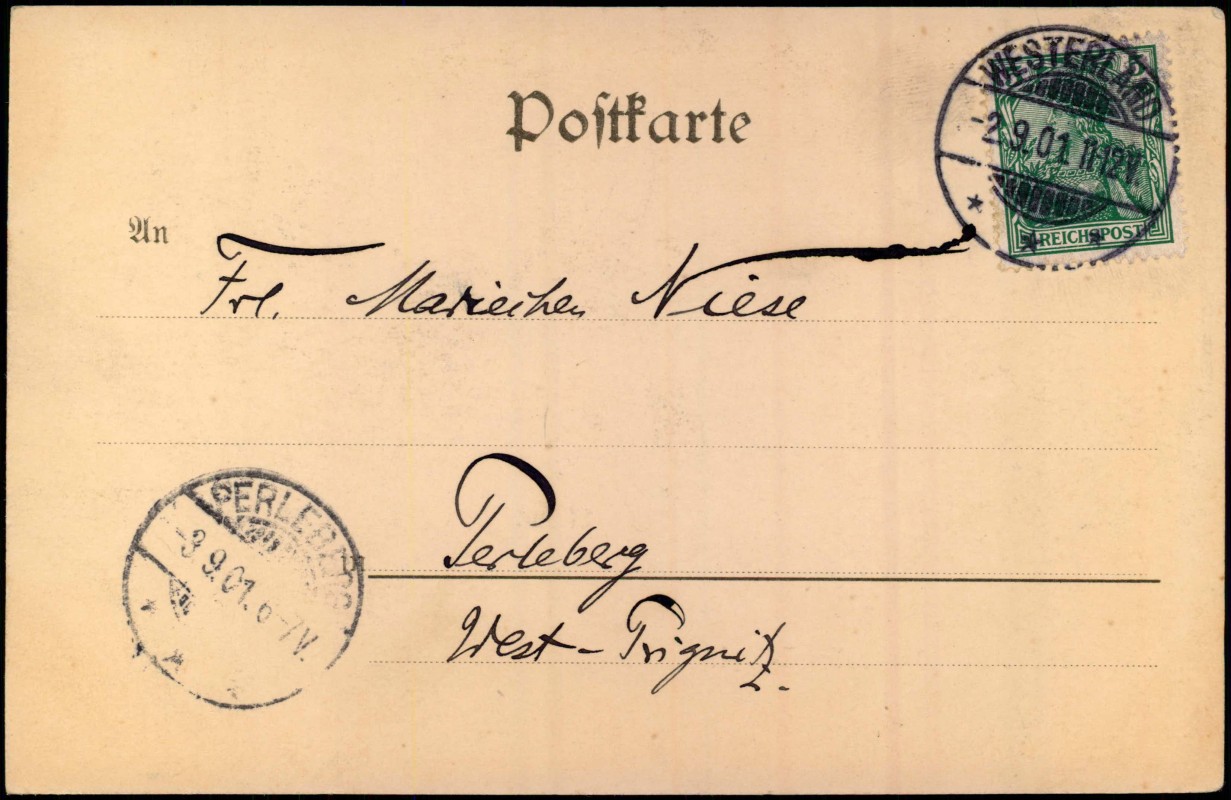 Postkarte
WESTERLAND
-2.9.01 11-12V.
REICHSPOST
An
Frl. Mariechen Niese
PERLEBERG
-3.9.01. 6-7V.
Perleberg
West-Prignitz.